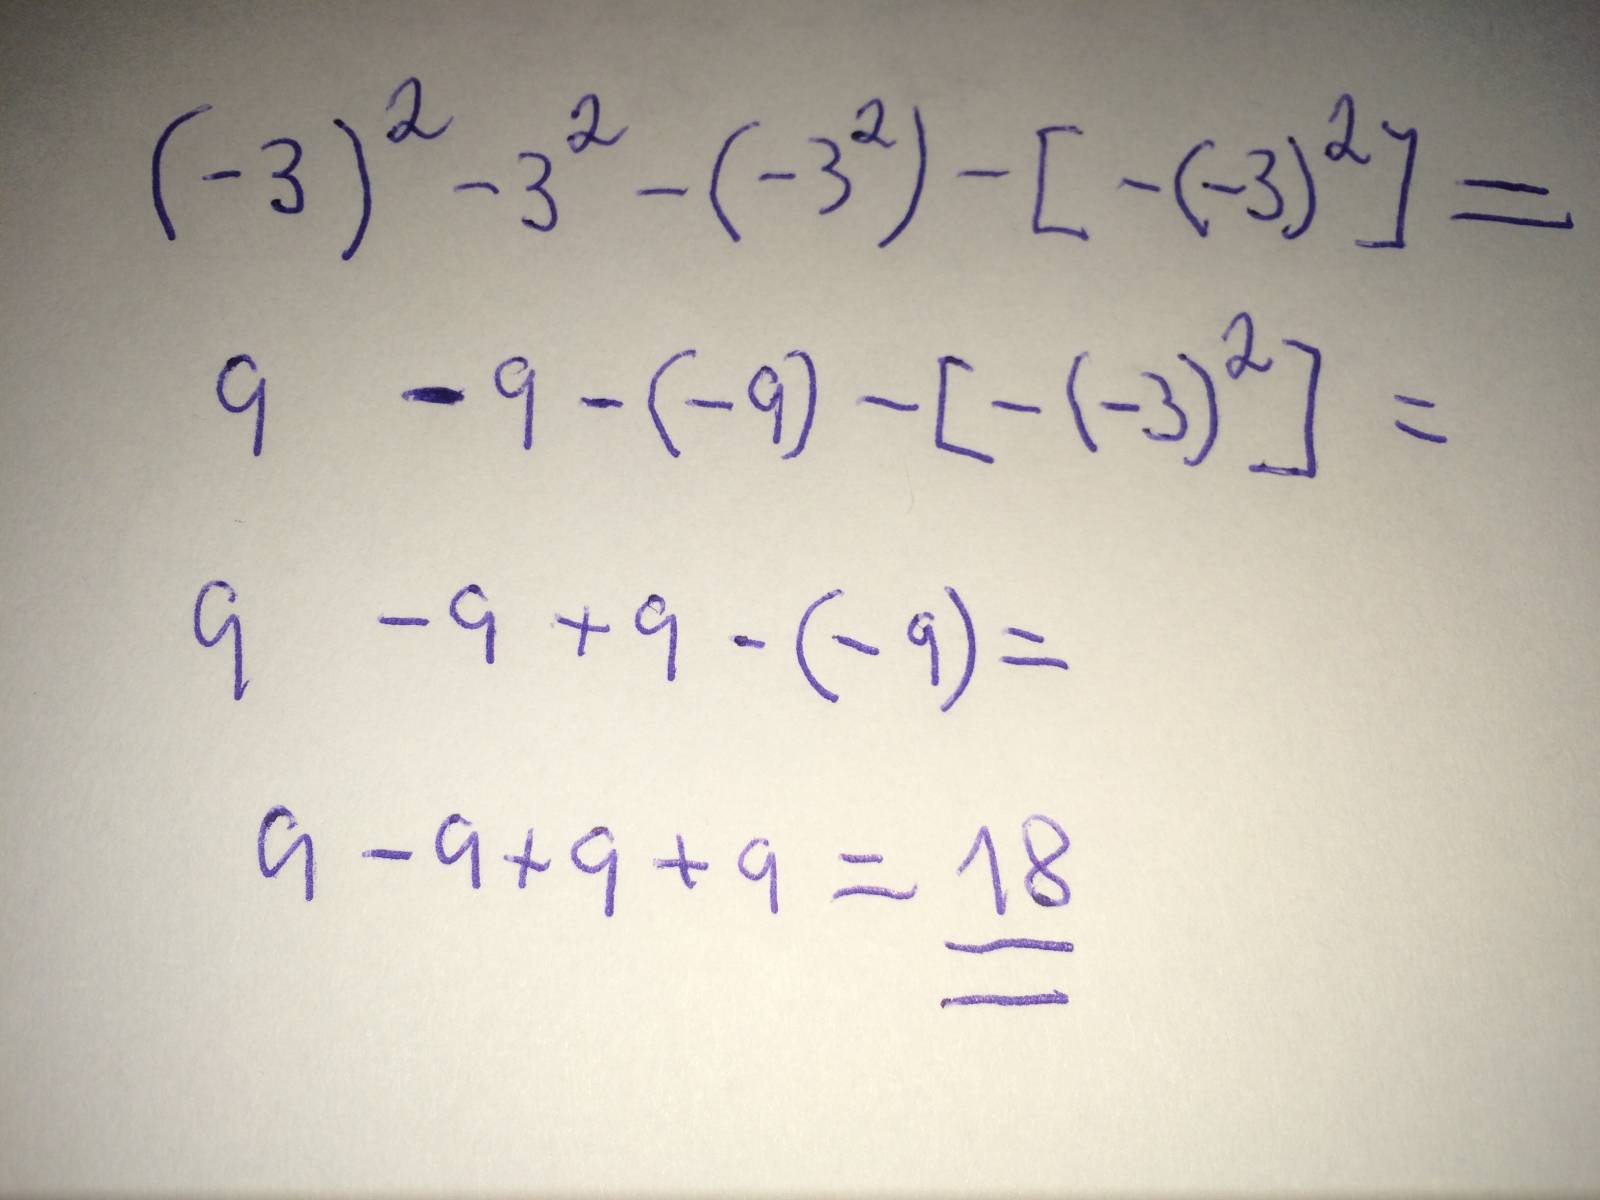 (-3)² - 3² - (-3²) - [-(-3)²] =
9 - 9 - (-9) - [-(-3)²] =
9 - 9 + 9 - (-9) =
9 - 9 + 9 + 9 = 18